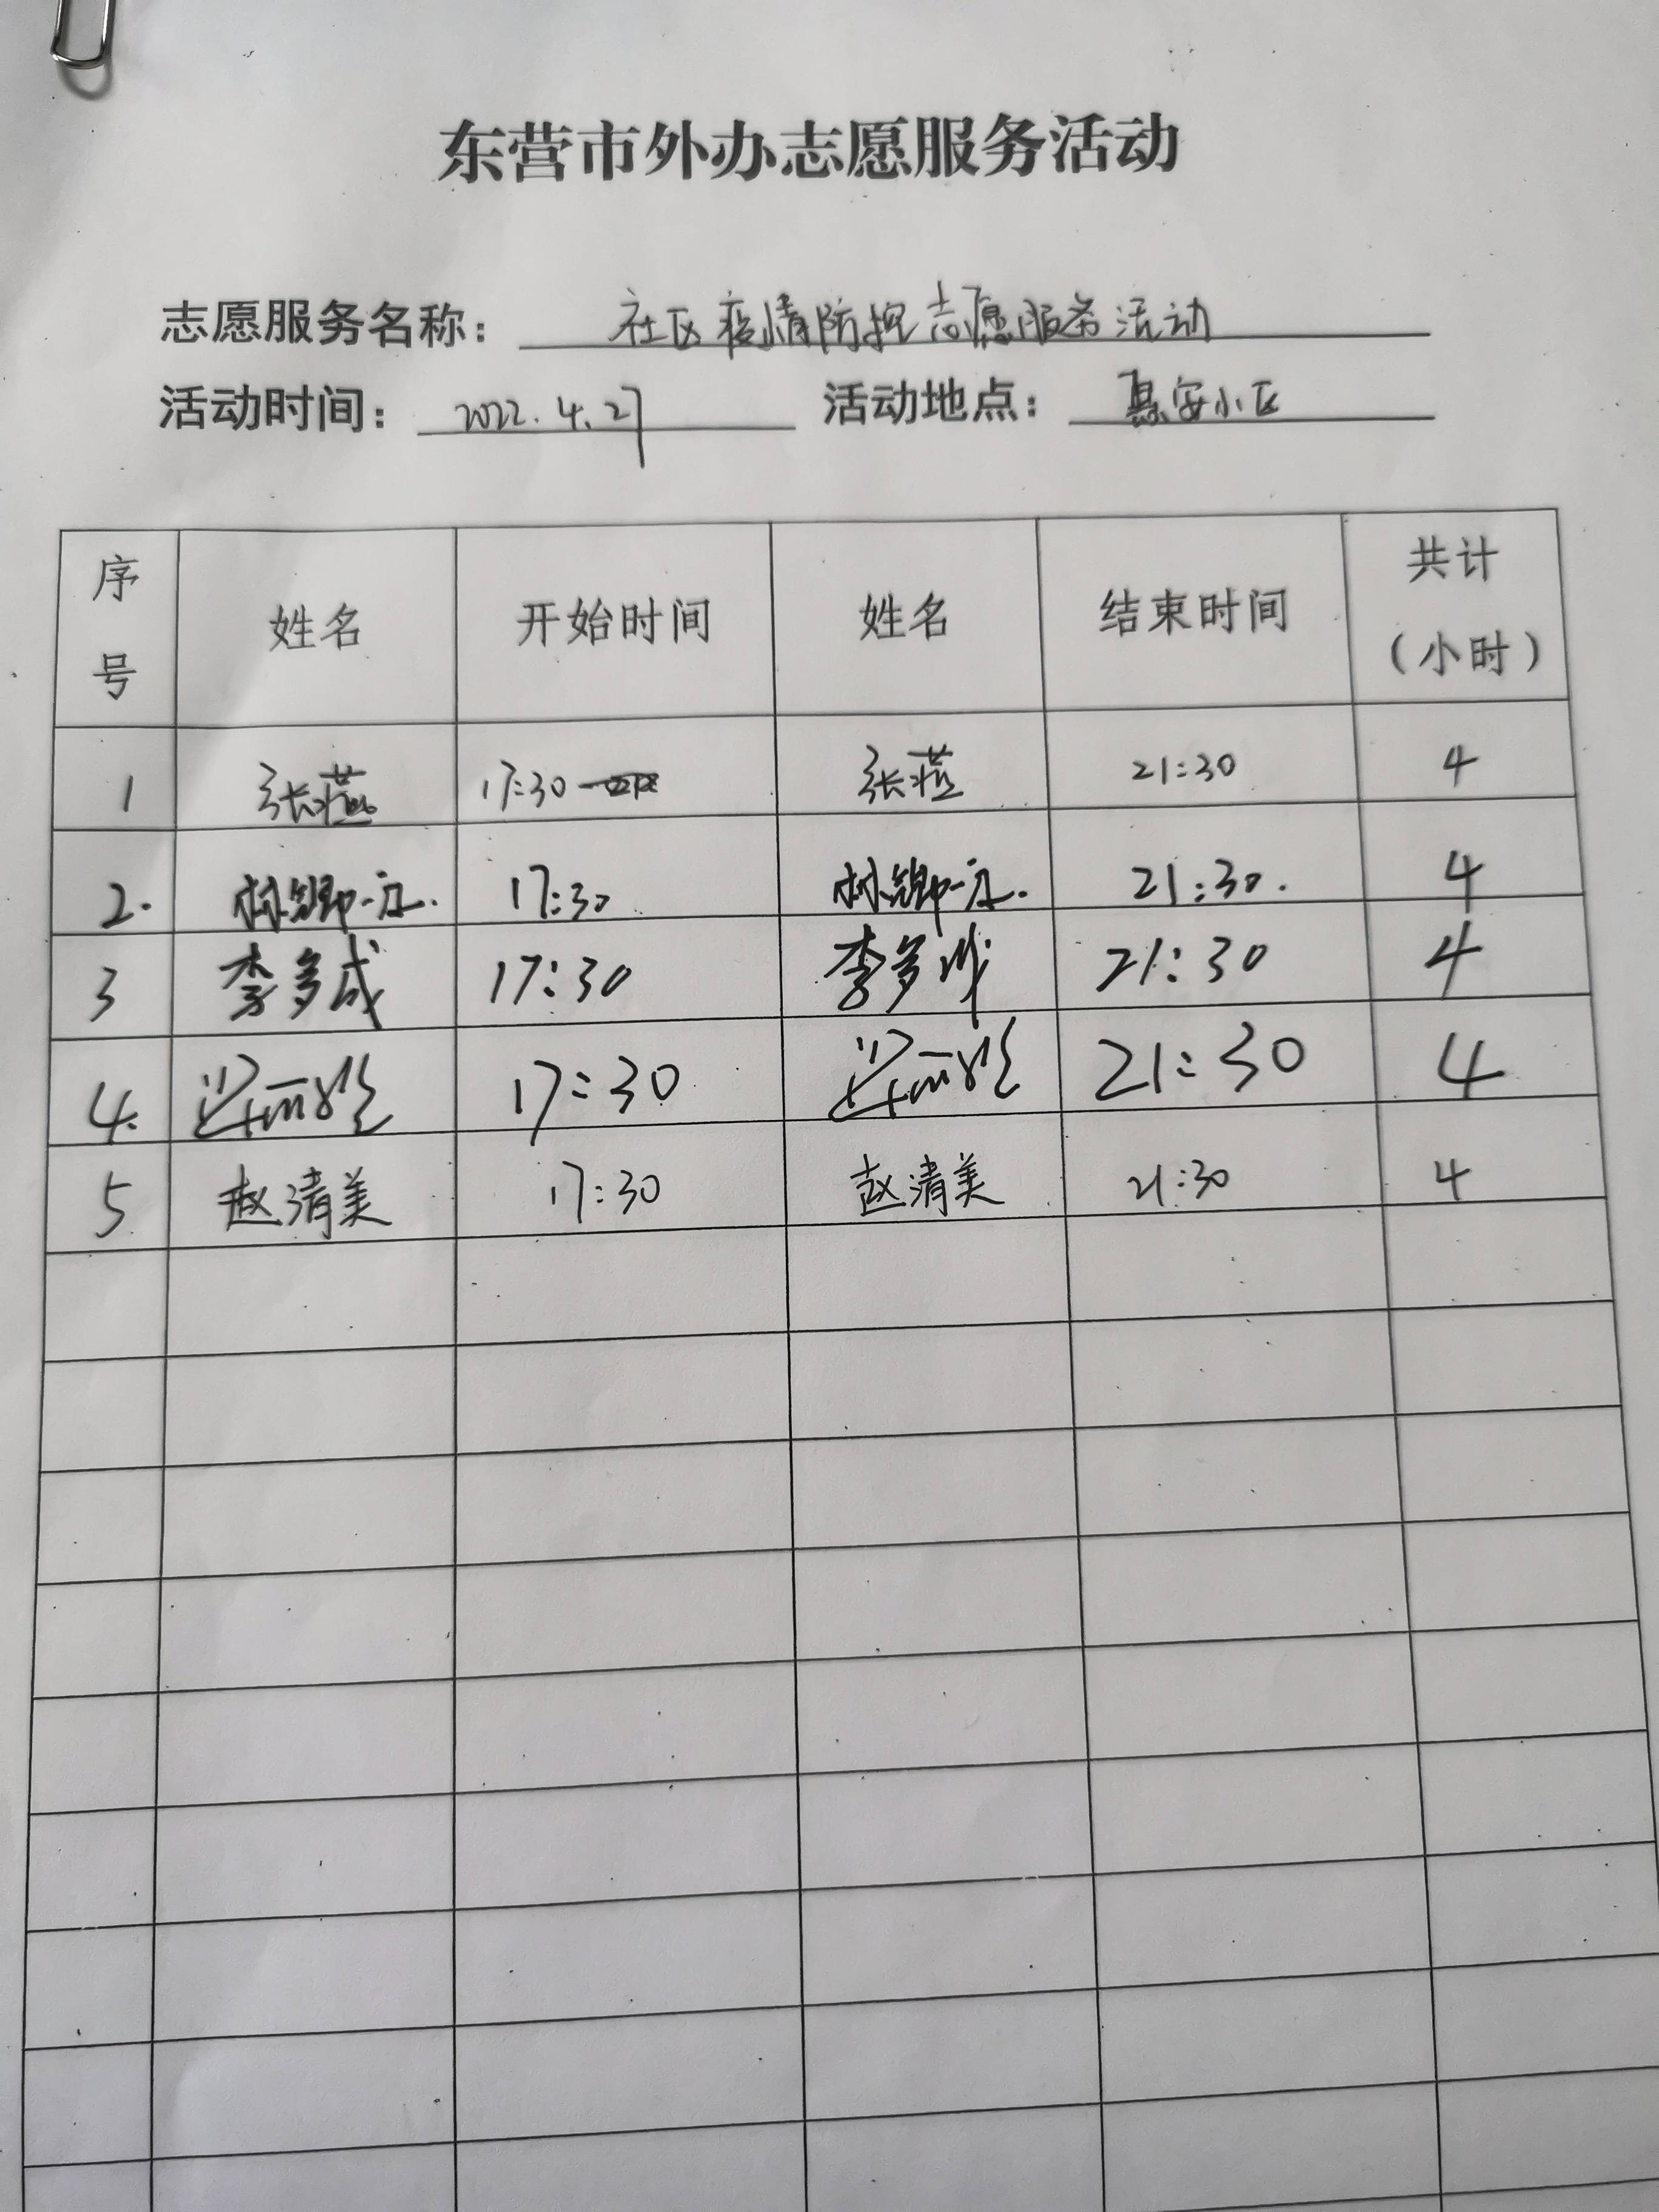 东营市外办志愿服务活动
志愿服务名称：社区疫情防控志愿服务活动
活动时间：2022.4.27 活动地点：惠安小区
序号 姓名 开始时间 姓名 结束时间 共计（小时）
1 张燕 17:30 张燕 21:30 4
2. 17:30 21:30. 4
3 李多成 17:30 李多成 21:30 4
4. 17:30 21:30 4
5 赵清美 17:30 赵清美 21:30 4